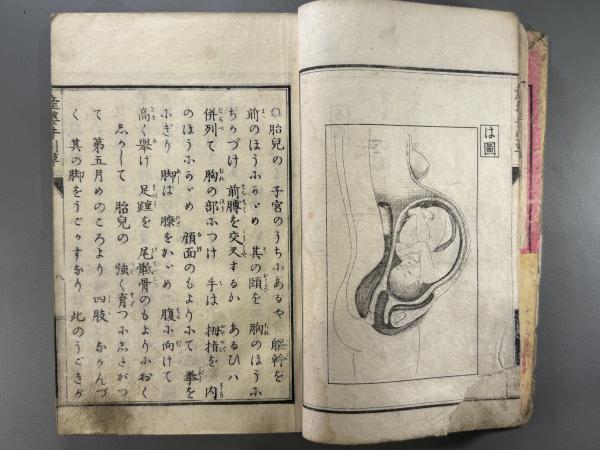 は圖
○胎兒の 子宮のうちにあるや 軀幹を
前のほうにかゞめ 其の頤を 胸のほうに
ちかづけ 前膊を交叉するか あるひハ
併列て 胸の部につけ 手は 拇指を 内
のほうにかゞめ 顔面のもよりにて 拳を
にぎり 脚は 膝をかゞめ 腹に向けて
高く擧け 足踵を 尾骶骨のもよりにおく
志かして 胎兒の 強く育つに志たがつ
て 第五月めのころより 四肢 なかんづ
く 其の脚をうごかすなり 此のうごきが
八